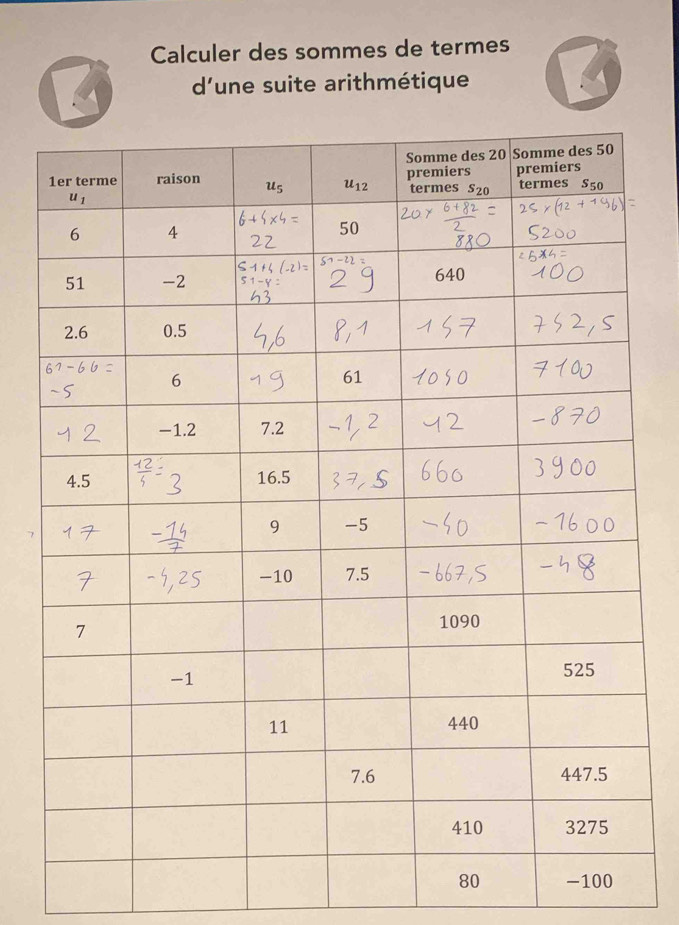 Calculer des sommes de termes
d'une suite arithmétique
1er terme u1 raison u5 u12 Somme des 20 premiers termes S20 Somme des 50 premiers termes S50
6 4 6+4×4= 22 50 20× 6+82/2 = 880 25×(12+196)= 5200
51 −2 51+4(-2)= 51-8= 43 51-22= 29 640 25×4= 100
2.6 0.5 4,6 8,1 147 742,5
61-66= -5 6 19 61 1040 7100
12 −1.2 7.2 -1,2 12 -870
4.5 12/4= 3 16.5 37,5 660 3900
17 -14/7 9 −5 -40 -1600
7 -4,25 −10 7.5 -667,5 -48
7 1090
−1 525
11 440
7.6 447.5
410 3275
80 −100